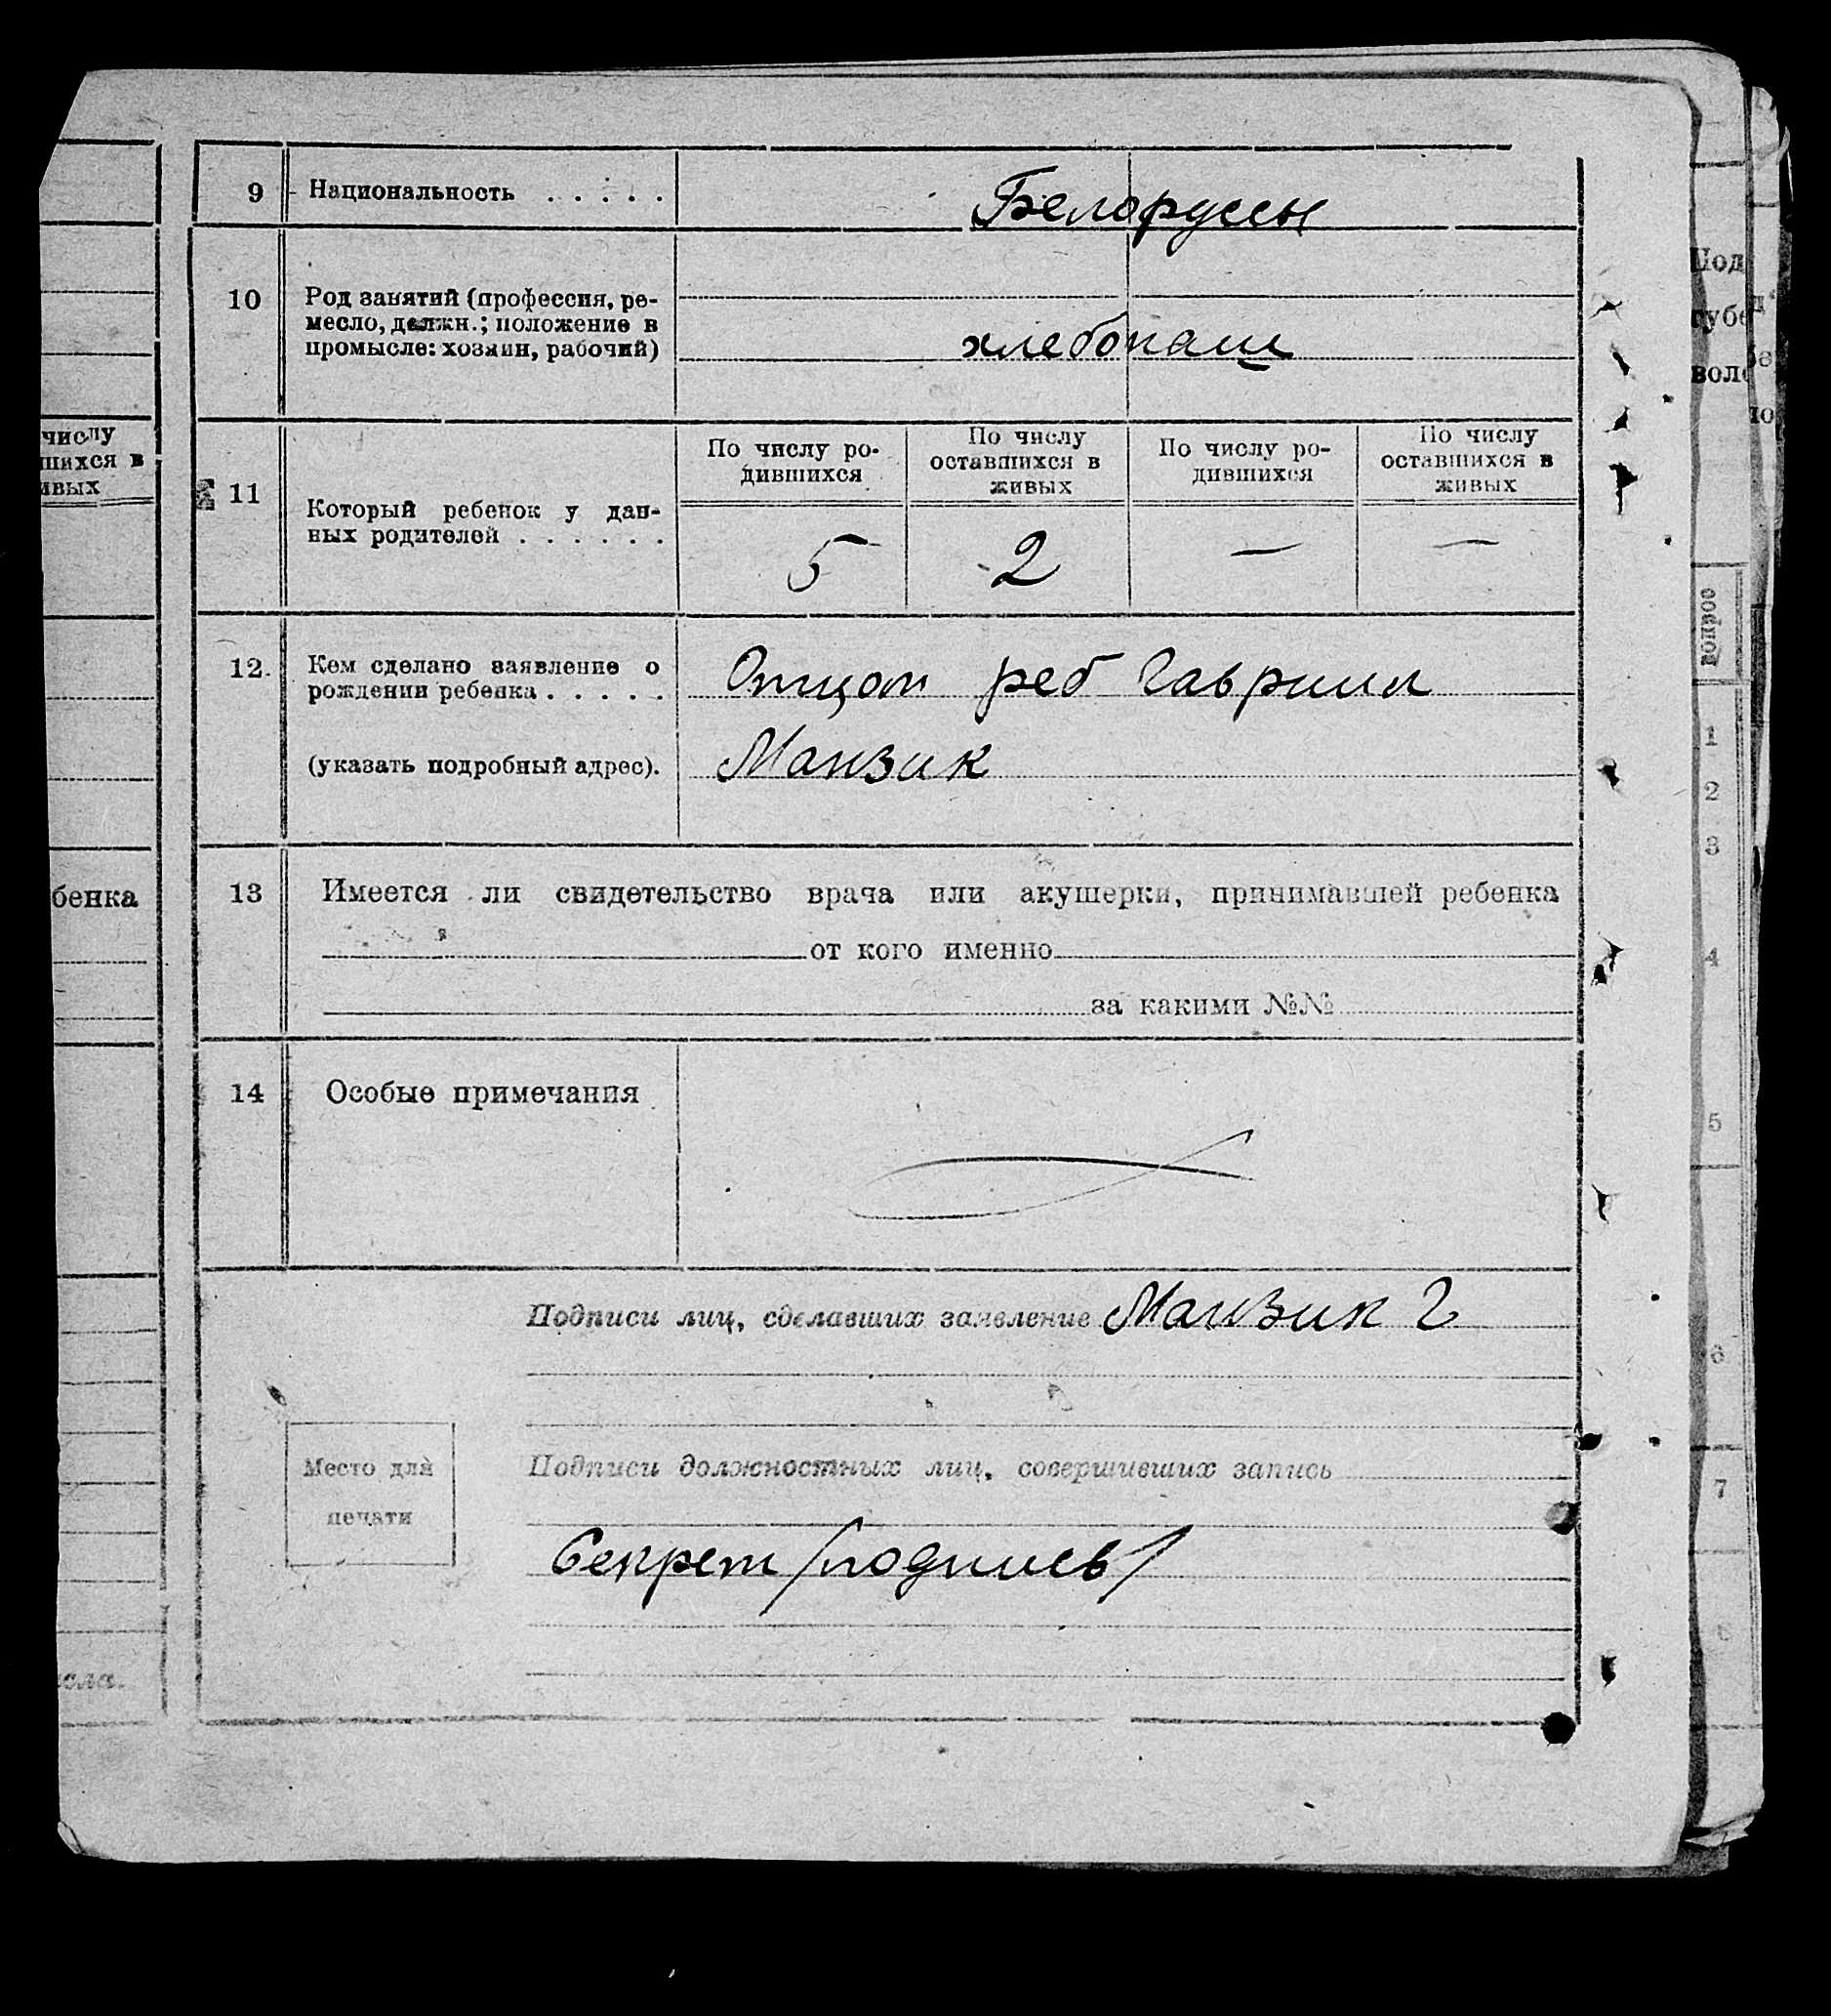 9 Национальность . . . . . Белоруссы
10 Род занятий (профессия, ре-
месло, должн.; положение в
промысле: хозяин, рабочий)
хлебопаш
11 Который ребенок у дан-
ных родителей . . . . . .
По числу ро-
дившихся
По числу
оставшихся в
живых
По числу ро-
дившихся
По числу
оставшихся в
живых
5 2 — —
12. Кем сделано заявление о
рождении ребенка . . . . .
(указать подробный адрес).
Отцом реб Гавриил
Манзик
13 Имеется ли свидетельство врача или акушерки, принимавшей ребенка
от кого именно
за какими №№
14 Особые примечания
Подписи лиц, сделавших заявление Манзик Г
Место для
печати
Подписи должностных лиц, совершивших запись
Секрет /подпись/
числу
шихся в
ивых
бенка
Под
губе
воло
вопрос
1
2
3
4
5
6
7